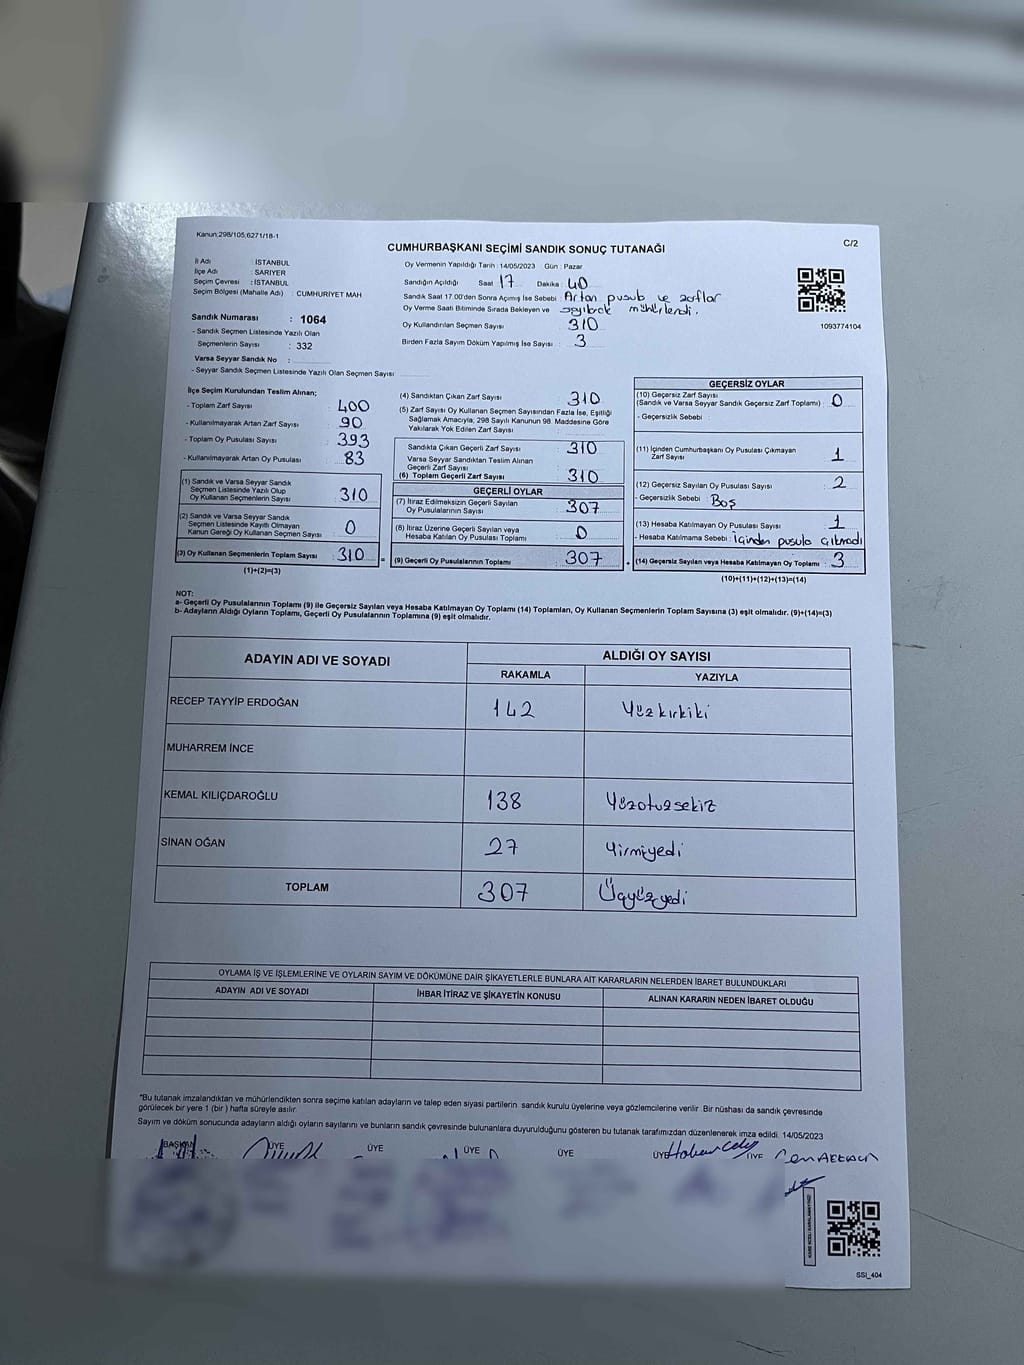 Kanun:298/105;6271/18-1
C/2
CUMHURBAŞKANI SEÇİMİ SANDIK SONUÇ TUTANAĞI
İl Adı : İSTANBUL
İlçe Adı : SARIYER
Seçim Çevresi : İSTANBUL
Seçim Bölgesi (Mahalle Adı) : CUMHURİYET MAH
Sandık Numarası : 1064
- Sandık Seçmen Listesinde Yazılı Olan
Seçmenlerin Sayısı : 332
Varsa Seyyar Sandık No :
- Seyyar Sandık Seçmen Listesinde Yazılı Olan Seçmen Sayısı
Oy Vermenin Yapıldığı Tarih : 14/05/2023 Gün : Pazar
Sandığın Açıldığı Saat 17 Dakika : 40
Sandık Saat 17.00'den Sonra Açımış İse Sebebi : Artan pusula ve zarflar
Oy Verme Saati Bitiminde Sırada Bekleyen ve sayılarak mühürlendi.
Oy Kullandırılan Seçmen Sayısı 310
Birden Fazla Sayım Döküm Yapılmış İse Sayısı : 3
1093774104
İlçe Seçim Kurulundan Teslim Alınan;
- Toplam Zarf Sayısı : 400
- Kullanılmayarak Artan Zarf Sayısı : 90
- Toplam Oy Pusulası Sayısı : 393
- Kullanılmayarak Artan Oy Pusulası : 83
(1) Sandık ve Varsa Seyyar Sandık
Seçmen Listesinde Yazılı Olup
Oy Kullanan Seçmenlerin Sayısı : 310
(2) Sandık ve Varsa Seyyar Sandık
Seçmen Listesinde Kayıtlı Olmayan
Kanun Gereği Oy Kullanan Seçmen Sayısı : 0
(3) Oy Kullanan Seçmenlerin Toplam Sayısı : 310
(1)+(2)=(3)
=
(4) Sandıktan Çıkan Zarf Sayısı : 310
(5) Zarf Sayısı Oy Kullanan Seçmen Sayısından Fazla İse, Eşitliği
Sağlamak Amacıyla; 298 Sayılı Kanunun 98. Maddesine Göre
Yakılarak Yok Edilen Zarf Sayısı :
Sandıkta Çıkan Geçerli Zarf Sayısı : 310
Varsa Seyyar Sandıktan Teslim Alınan
Geçerli Zarf Sayısı :
(6) Toplam Geçerli Zarf Sayısı : 310
GEÇERLİ OYLAR
(7) İtiraz Edilmeksizin Geçerli Sayılan
Oy Pusulalarının Sayısı : 307
(8) İtiraz Üzerine Geçerli Sayılan veya
Hesaba Katılan Oy Pusulası Toplamı : 0
(9) Geçerli Oy Pusulalarının Toplamı : 307
+
GEÇERSİZ OYLAR
(10) Geçersiz Zarf Sayısı
(Sandık ve Varsa Seyyar Sandık Geçersiz Zarf Toplamı) : 0
- Geçersizlik Sebebi :
(11) İçinden Cumhurbaşkanı Oy Pusulası Çıkmayan
Zarf Sayısı : 1
(12) Geçersiz Sayılan Oy Pusulası Sayısı : 2
- Geçersizlik Sebebi : Boş
(13) Hesaba Katılmayan Oy Pusulası Sayısı : 1
- Hesaba Katılmama Sebebi : İçinden pusula çıkmadı
(14) Geçersiz Sayılan veya Hesaba Katılmayan Oy Toplamı : 3
(10)+(11)+(12)+(13)=(14)
NOT:
a- Geçerli Oy Pusulalarının Toplamı (9) ile Geçersiz Sayılan veya Hesaba Katılmayan Oy Toplamı (14) Toplamları, Oy Kullanan Seçmenlerin Toplam Sayısına (3) eşit olmalıdır. (9)+(14)=(3)
b- Adayların Aldığı Oyların Toplamı, Geçerli Oy Pusulalarının Toplamına (9) eşit olmalıdır.
ADAYIN ADI VE SOYADI
ALDIĞI OY SAYISI
RAKAMLA YAZIYLA
RECEP TAYYİP ERDOĞAN 142 Yüzkırkiki
MUHARREM İNCE
KEMAL KILIÇDAROĞLU 138 Yüzotuzsekiz
SİNAN OĞAN 27 Yirmiyedi
TOPLAM 307 Üçyüzyedi
OYLAMA İŞ VE İŞLEMLERİNE VE OYLARIN SAYIM VE DÖKÜMÜNE DAİR ŞİKAYETLERLE BUNLARA AİT KARARLARIN NELERDEN İBARET BULUNDUKLARI
ADAYIN ADI VE SOYADI İHBAR İTİRAZ VE ŞİKAYETİN KONUSU ALINAN KARARIN NEDEN İBARET OLDUĞU
*Bu tutanak imzalandıktan ve mühürlendikten sonra seçime katılan adayların ve talep eden siyasi partilerin sandık kurulu üyelerine veya gözlemcilerine verilir. Bir nüshası da sandık çevresinde
görülecek bir yere 1 (bir) hafta süreyle asılır.
Sayım ve döküm sonucunda adayların aldığı oyların sayılarını ve bunların sandık çevresinde bulunanlara duyurulduğunu gösteren bu tutanak tarafımızdan düzenlenerek imza edildi. 14/05/2023
BAŞKAN ÜYE ÜYE ÜYE ÜYE ÜYE ÜYE
SSI_404